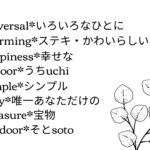 versal*いろいろなひとに
rming*ステキ・かわいらしい
piness*幸せな
oor*うちuchi
ple*シンプル
y*唯一あなただけの
asure*宝物
door*そとsoto